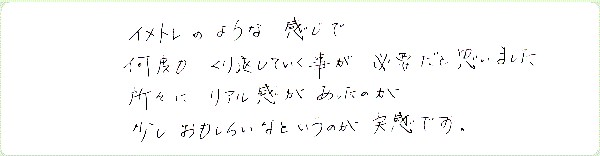 イメトレのような感じで
何度か くり返していく事が 必要だと思いました
所々に リアル感が あったのが
少し おもしろいなというのが 実感です。